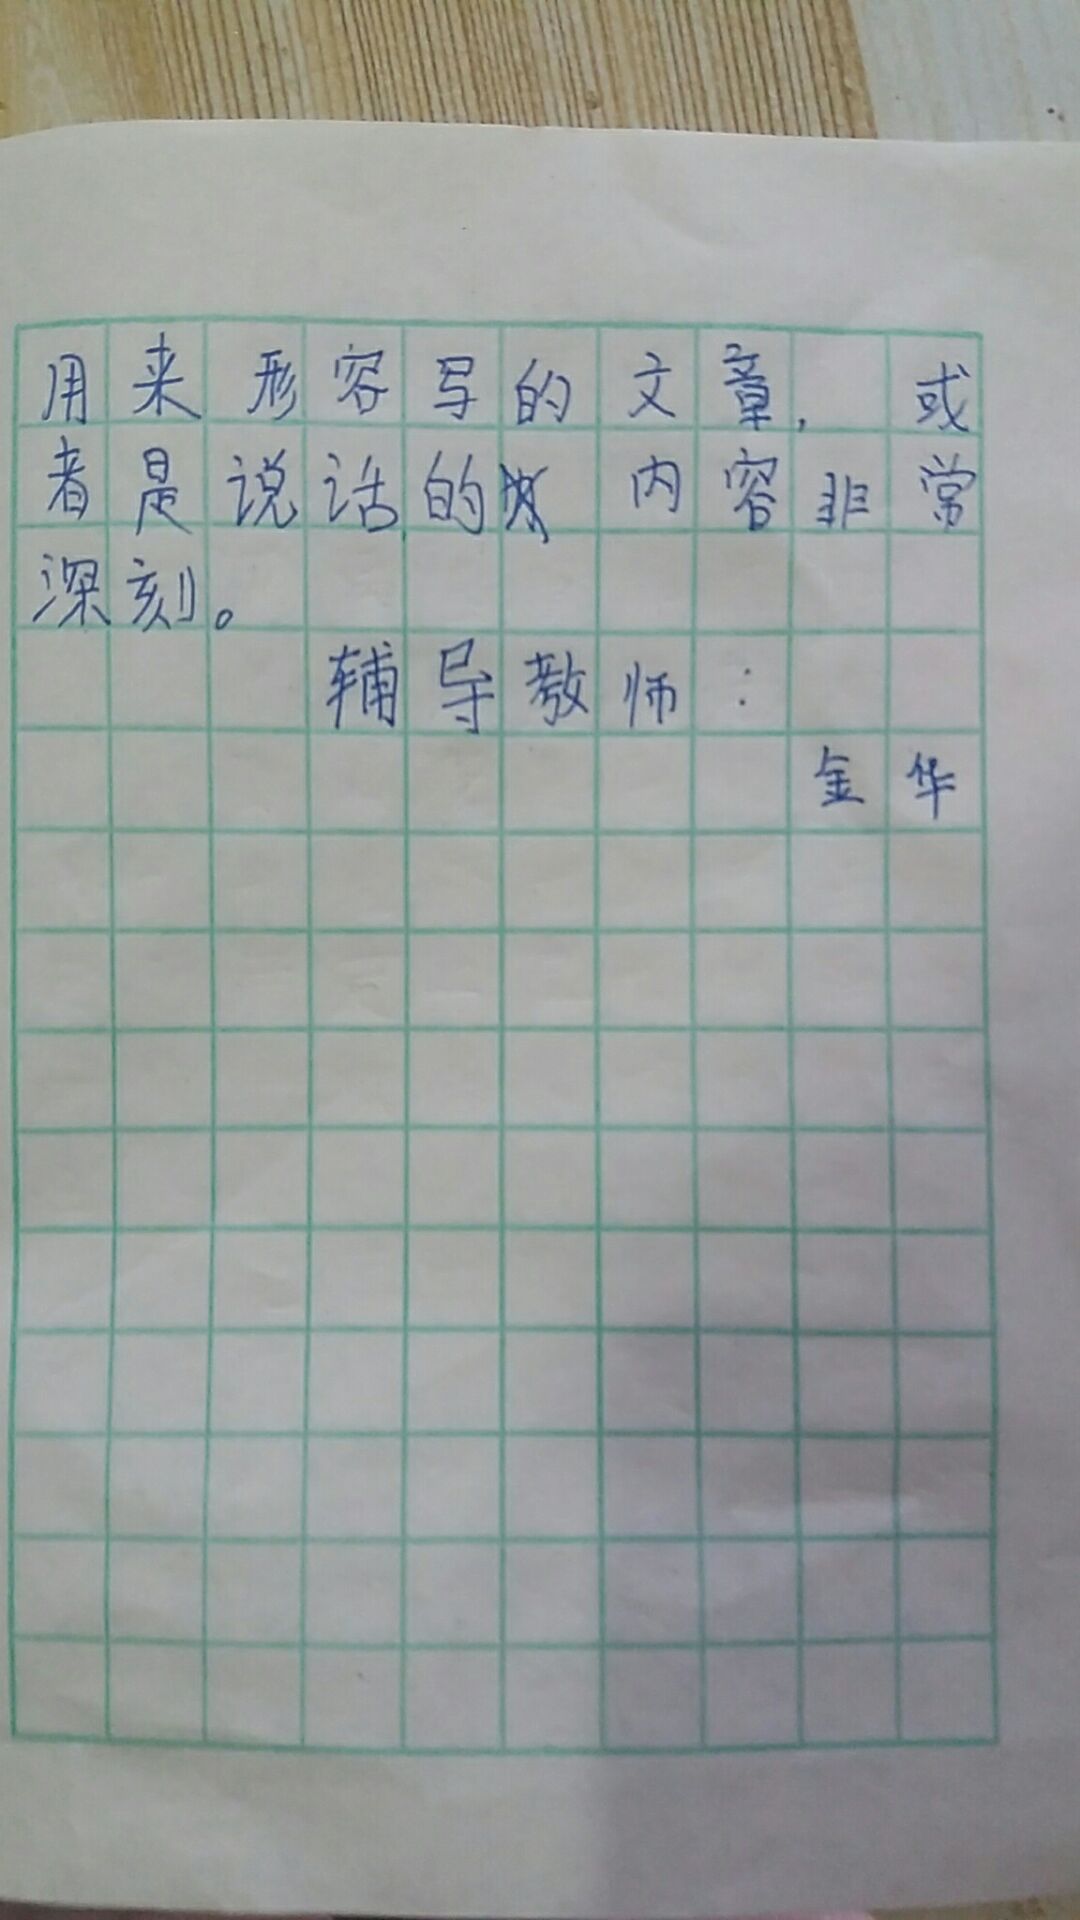 用来形容写的文章,或
者是说话的内容非常
深刻。
辅导教师:
金华